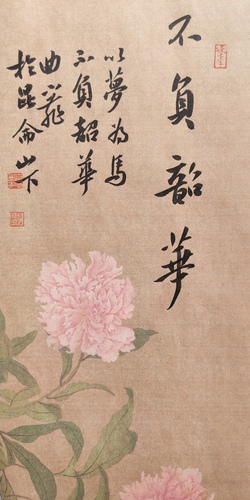 不負韶華
以夢為馬
不負韶華
於昆侖山下